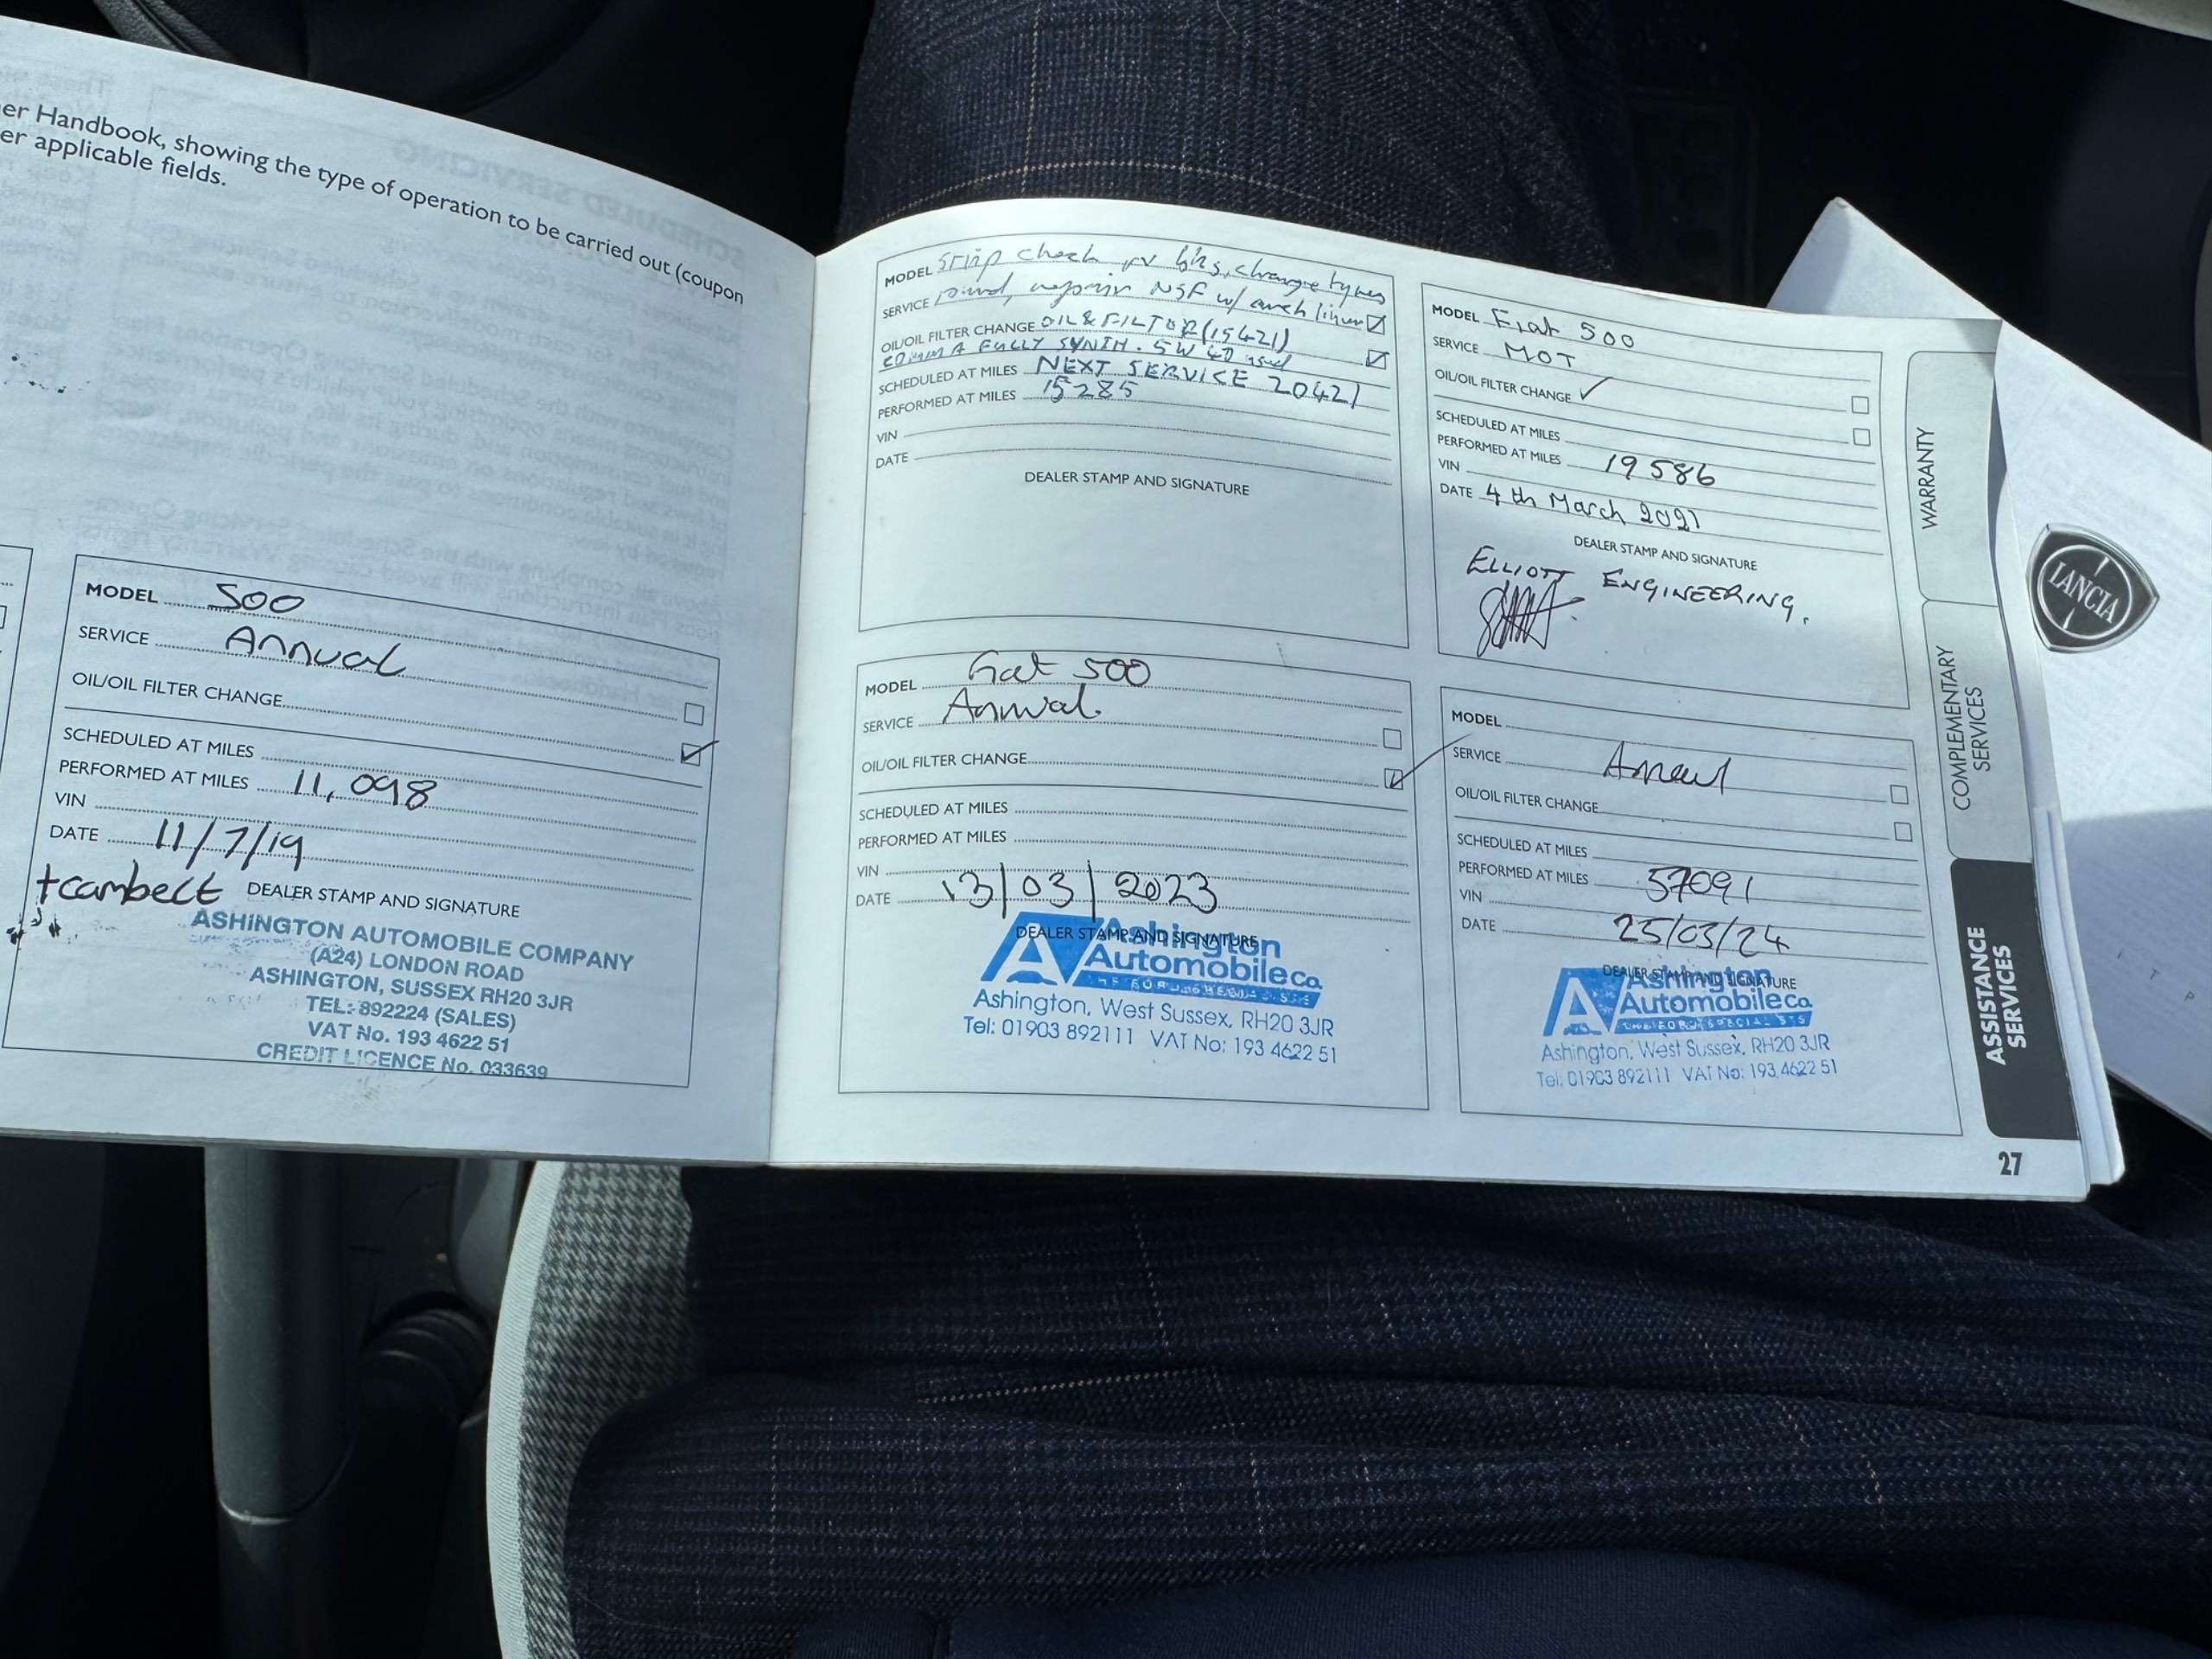 er Handbook, showing the type of operation to be carried out (coupon
er applicable fields.
MODEL 500
SERVICE Annual
OIL/OIL FILTER CHANGE
SCHEDULED AT MILES
PERFORMED AT MILES 11,098
VIN
DATE 11/7/19
+cambelt DEALER STAMP AND SIGNATURE
ASHINGTON AUTOMOBILE COMPANY
(A24) LONDON ROAD
ASHINGTON, SUSSEX RH20 3JR
TEL: 892224 (SALES)
VAT No. 193 4622 51
CREDIT LICENCE No. 033639
MODEL Strip check change tyres
SERVICE round, NSF w/ arch liner
OIL/OIL FILTER CHANGE OIL & FILTOR (15421)
COMMA FULLY SYNTH. 5W 40 used
SCHEDULED AT MILES NEXT SERVICE 20421
PERFORMED AT MILES 15285
VIN
DATE
DEALER STAMP AND SIGNATURE
MODEL Fiat 500
SERVICE MOT
OIL/OIL FILTER CHANGE ✓
SCHEDULED AT MILES
PERFORMED AT MILES 19586
VIN
DATE 4th March 2021
DEALER STAMP AND SIGNATURE
ELLIOTT ENGINEERING.
MODEL Fiat 500
SERVICE Annual.
OIL/OIL FILTER CHANGE
SCHEDULED AT MILES
PERFORMED AT MILES
VIN
DATE 13/03/2023
DEALER STAMP AND SIGNATURE
Ashington
Automobile Co.
Ashington, West Sussex, RH20 3JR
Tel: 01903 892111 VAT No: 193 4622 51
MODEL
SERVICE Annual
OIL/OIL FILTER CHANGE
SCHEDULED AT MILES
PERFORMED AT MILES 57091
VIN
DATE 25/03/24
DEALER STAMP AND SIGNATURE
Ashington
Automobile Co.
Ashington, West Sussex, RH20 3JR
Tel: 01903 892111 VAT No: 193 4622 51
WARRANTY
COMPLEMENTARY
SERVICES
ASSISTANCE
SERVICES
27
LANCIA